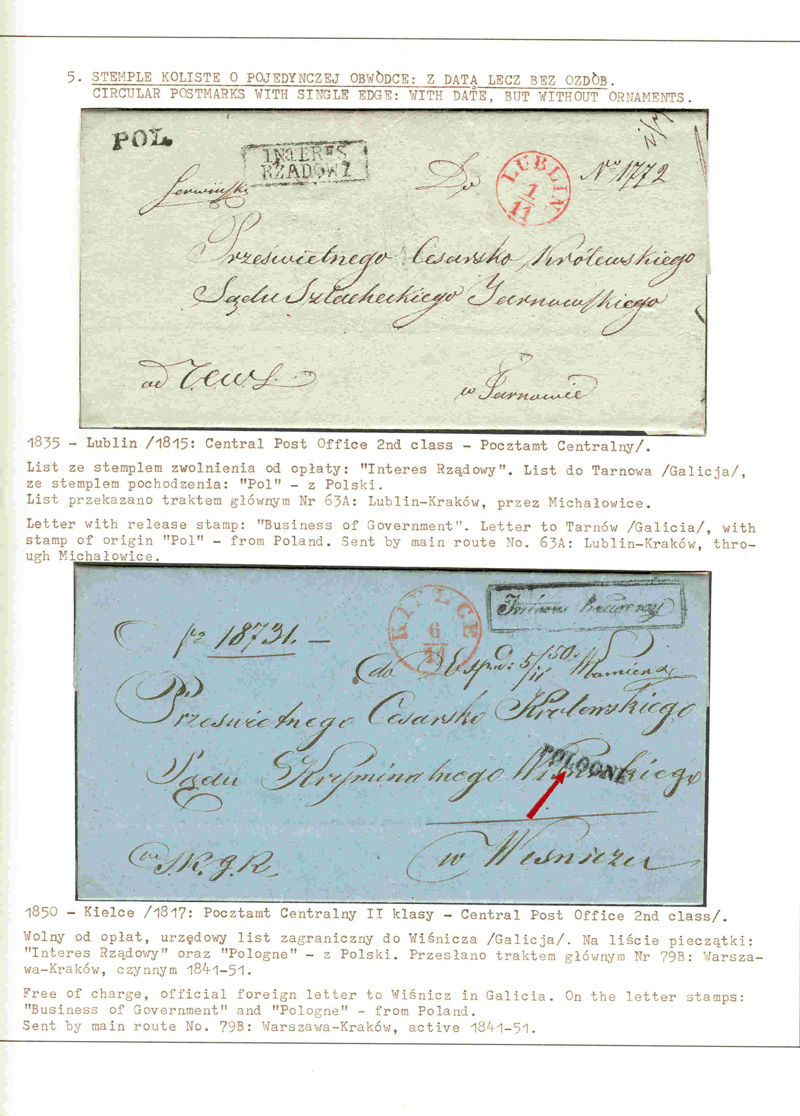 5. STEMPLE KOLISTE O POJEDYNCZEJ OBWÒDCE: Z DATĄ LECZ BEZ OZDÒB.
CIRCULAR POSTMARKS WITH SINGLE EDGE: WITH DATE, BUT WITHOUT ORNAMENTS.
POL.
INTERES
RZĄDOWY
LUBLIN
1
11
Do
No 1772
Prześwietnego Cesarsko Królewskiego
Sądu Szlacheckiego Tarnowskiego
od
w Tarnowie
1835 - Lublin /1815: Central Post Office 2nd class - Pocztamt Centralny/.
List ze stemplem zwolnienia od opłaty: "Interes Rządowy". List do Tarnowa /Galicja/,
ze stemplem pochodzenia: "Pol" - z Polski.
List przekazano traktem głównym Nr 63A: Lublin-Kraków, przez Michałowice.
Letter with release stamp: "Business of Government". Letter to Tarnów /Galicia/, with
stamp of origin "Pol" - from Poland. Sent by main route No. 63A: Lublin-Kraków, thro-
ugh Michałowice.
KIELCE
6
11
Interes Rządowy
18731.
do
5/11 50.
Prześwietnego Cesarsko Krolewskiego
Sądu Kryminalnego Wisnickiego
POLOGNE
w Wisniczu
1850 - Kielce /1817: Pocztamt Centralny II klasy - Central Post Office 2nd class/.
Wolny od opłat, urzędowy list zagraniczny do Wiśnicza /Galicja/. Na liście pieczątki:
"Interes Rządowy" oraz "Pologne" - z Polski. Przesłano traktem głównym Nr 79B: Warsza-
wa-Kraków, czynnym 1841-51.
Free of charge, official foreign letter to Wiśnicz in Galicia. On the letter stamps:
"Business of Government" and "Pologne" - from Poland.
Sent by main route No. 79B: Warszawa-Kraków, active 1841-51.